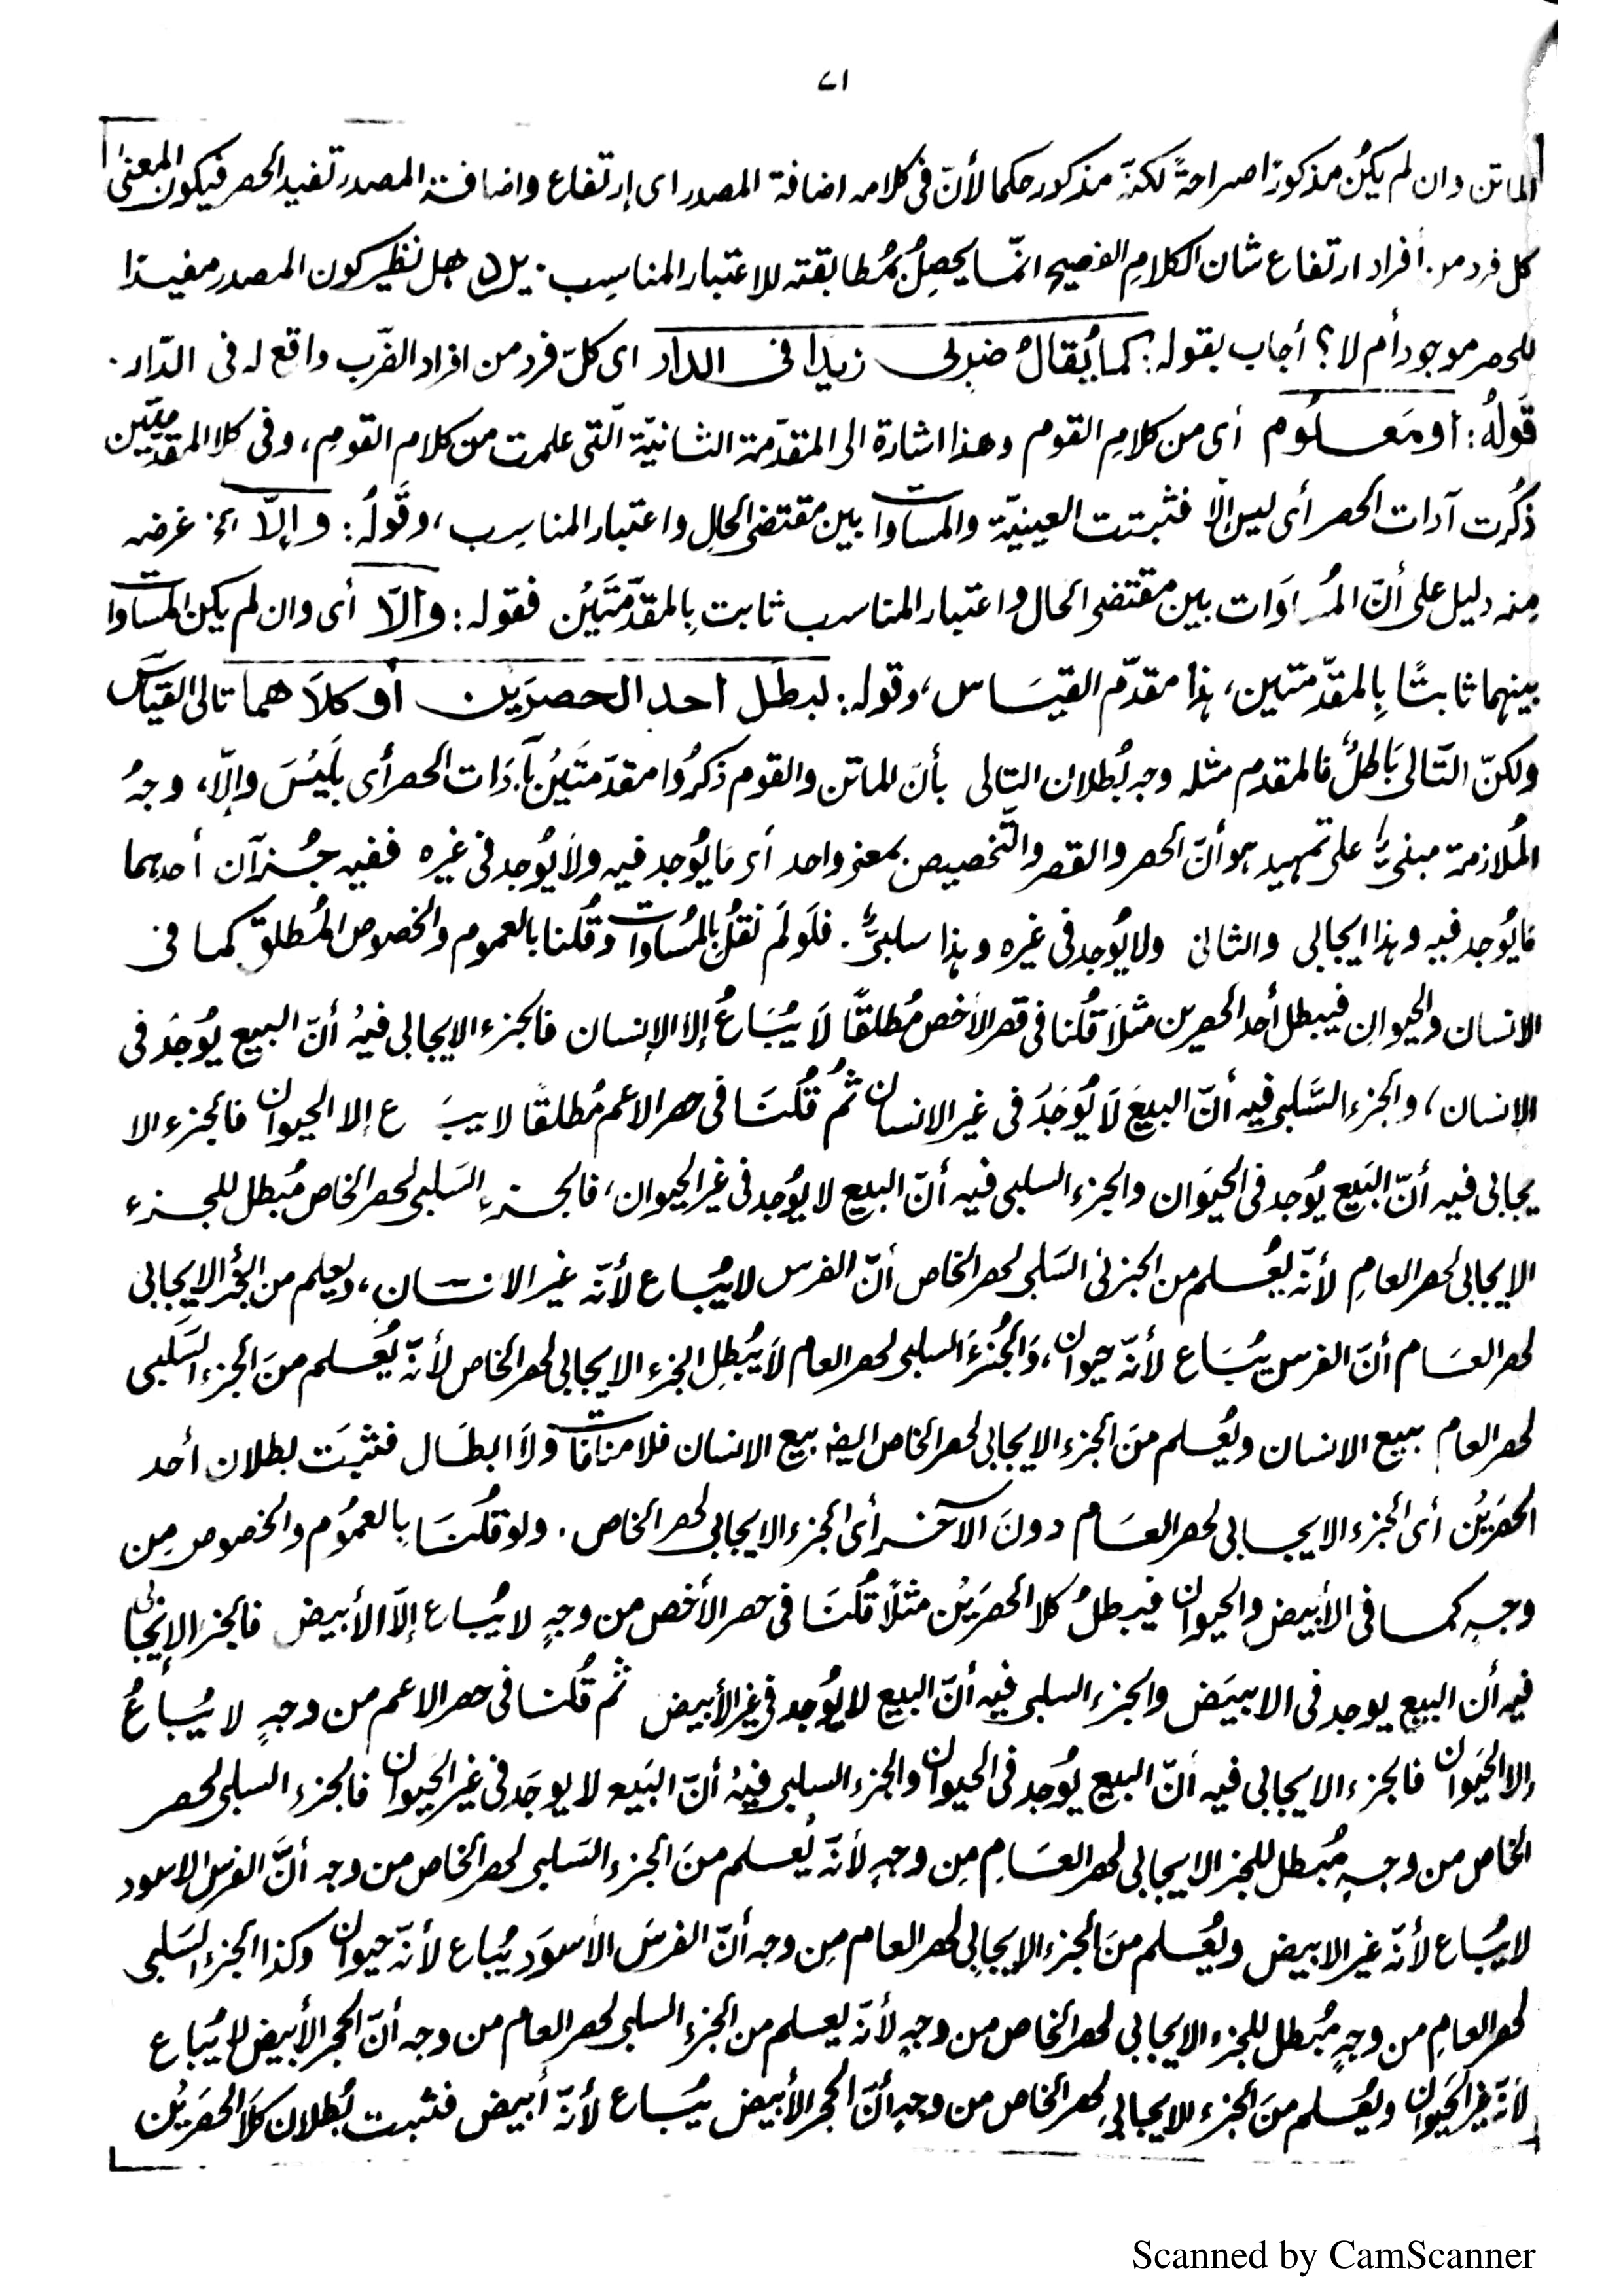 ٧١
الماتن وان لم يكُن مذكورًا صراحةً لكنّه مذكور حكما لأنّ فى كلامه اضافة المصدر اى إرتفاع واضافة المصدر تفيد الحصر فيكون المعنى
كل فرد من أفراد ارتفاع شان الكلامِ الفصيح انّما يحصِلُ بمُطابقته للاعتبار المناسِب. هل نظير كون المصدر مفيدًا
للحصر موجود أم لا؟ أجاب بقوله: كما يُقالُ ضربى زيدا فى الدار اى كلّ فرد من افراد الضّرب واقع له فى الدّار.
قَولُهُ: أو مَعلُوم أى من كلامِ القوم وهذا اشارة الى المقدّمة الثانيّة الّتى علمت من كلام القومِ، وفى كلا المقدّمتَين
ذُكرت آدات الحصر أى ليس الّا فثبتت العينيّة والمساوات بين مقتضى الحالِ واعتبار المناسِب، وقَولُه: وإلّا الخ غرضه
مِنه دليل على أنّ المُساوَات بين مقتضى الحال واعتبار المناسب ثابت بِالمقدّمَتَيْن فقوله: والّا أى وان لم يكن المساوات
بينهما ثابتًا بِالمقدّمتين، هذا مقدّم القيَاس، وقوله: لبطل احد الحصرَين أو كلاَهما تالى القيَاس
ولكنّ التّالى بَاطلٌ فالمقدم مثله وجه بُطلان التالى بأن الماتن والقوم ذكرُوا مقدّمتَيْن بآدَات الحصر أى بلَيْسَ وإلّا، وجهُ
المُلازمة مبنىٌّ على تمهيد هو أنّ الحصر والقصر والتّخصيص بمعنى واحد أى مَا يُوجد فيه ولاَ يُوجد فى غيره ففيه جُزآن أحدهما
مَا يُوجد فيه وهذا ايجابى والثانى ولا يُوجد فى غيره وهذا سلبىٌّ. فلَو لَم نقُل بِالمُساوات وقُلنا بالعموم والخصوص المُطلق كما فى
الانسان والحيوانِ فيبطل أحد الحصرين مثلاً قُلنا فى قصر الأخص مُطلقًا لاَ يُبَاعُ إلا الإنسان فالجزء الايجابى فيهْ أنّ البيع يُوجَد فى
الإنسان، والجزء السَّلبى فيه أنّ البيعَ لَا يُوجَدُ فى غير الانسان ثمُ قُلنَا فى حصر الاعم مُطلقًا لا يبَ ع إلا الحيوان فالجزء الا
يجابى فيه أنّ البَيع يُوجد فى الحيَوان والجزء السلبى فيه أنّ البيع لا يُوجد فى غير الحيوان، فالجزءِ السَلبى لحصر الخاص مُبطل للجزء
الايجابى لحصر العامِ لأنّه يُعلم من الجزئى السَلبى لحصر الخاص أنّ الفرس لا يُباع لأنّه غير الانسان، ويعلم من الجُزء الايجابى
لحصر العَام أنّ الفرس يبُاع لأنّه حيوان، وَالجُزءُ السلبى لحصر العام لاَ يُبطِل الجزء الايجابى لحصر الخاص لأنّه يُعلم منَ الجزء السَلبى
لحصر العام ببيع الانسان ويُعلم منَ الجزء الايجابى لحصر الخاص ايضا بيع الانسان فلا منافات ولاَ ابطَال فثبَت بطلان أحد
الحَصَريْن أى الجزء الايجابى لحصر العَام دونَ الآخر أى الجزء الايجابى لحصر الخاص. ولو قُلنَا بِالعمُوم والخصوص مِن
وجهٍ كما فى الأبيض والحيوان فيبطلُ كلا الحصَرَيْن مثلًا قُلنَا فى حصر الأخص من وجهٍ لا يُباع إلاّ الأبيض فالجزء الايجابى
فيه أن البيع يوجد فى الابيَض والجزء السلبى فيه أنّ البيع لا يُوجد فى غير الأبيض ثم قُلنا فى حصر الاعم من وجهٍ لا يُباعُ
إلا الحيَوان فالجزء الايجابى فيه أنّ البيع يُوجد فى الحيوان والجزء السلبى فيهْ أنّ البَيع لا يوجَد فى غير الحيوان فالجزء السلبى لحصر
الخاص من وجهٍ مُبطل للجزء الايجابى لحصر العَامِ مِن وجهٍ لأنّه يُعلم منَ الجزء السَلبى لحصر الخاص من وجه أنَّ الفرس الاسود
لا يُباع لأنّه غير الابيض ويُعلم منَ الجزء الايجابِى لحصر العام مِن وجه أنّ الفرسَ الأسوَد يُباع لأنّه حيوان وكذا الجزء السَلبى
لحصر العامِ من وجهٍ مُبطل للجزء الايجابى لحصر الخاص من وجهٍ لأنّه يعلم من الجزء السلبى لحصر العام من وجه أنّ الحجر الأبيض لا يُباع
لأنّه غير الحيَوان ويعُلم منَ الجزء الايجابى لحصر الخاص من وجهٍ أنّ الحجر الأبيض يبُاع لأنّه أبيض فثبت بُطلان كلاَ الحصَرَيْن
Scanned by CamScanner